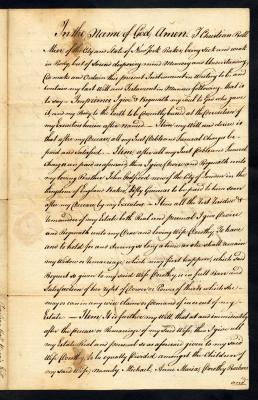 In the Name of God, Amen. I Christian Will
Mier of the City and State of New York Baker being Sick and weak
in Body, but of Sound disposing mind Memory and Understanding,
Do make and Ordain this present Instrument in Writing to be and
contain my Last Will and Testament in Manner following that is
to say — Imprimis I give & Bequeath my Soul to God who gave
it and my Body to the Earth to be decently buried at the Discretion of
my Executors herein after named — Item My Will and desire is
that after my Decease all my Just Debts and Funeral Charges be
paid and satisfied — Item after all my Just Debts and Funeral
Charges are paid as aforesaid then I give Devise and Bequeath unto
my loving Brother John now of the City of London in the
Kingdom of England Fifty Guineas to be paid to him soon
after my Decease by my Executors — Item all the Rest Residue &
remainder of my Estate both Real and personal I give Devise
and Bequeath unto my Dear and loving Wife Dorothy, To have
and to hold for and during so long a time as she shall remain
my Widow or Remarriage which may first happen; which said
Bequest is given to my said Wife Dorothy in full Barr and
Satisfaction of her right of Dower or Power of thirds which she
may or can in any wise claim or demand of in or out of my
Estate — Item, It is further my Will that at and immediately
after the Decease or Remarriage of my said Wife then I give all
my Estate Real and personal so as aforesaid given to my said
Wife Dorothy, to be equally divided amongst the Children of
my said Wife, namely Michael, Anna Maria, Dorothy
and